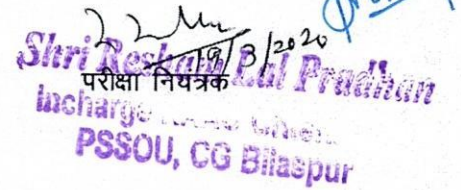 19/3/2020
Shri Resham Lal Pradhan
परीक्षा नियंत्रक
Incharge
PSSOU, CG Bilaspur